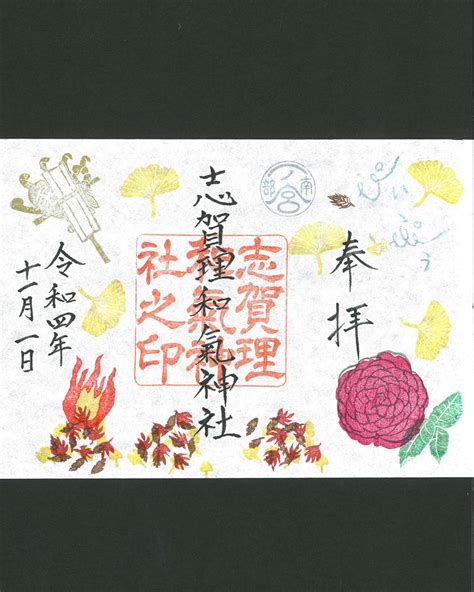 奉拝
南部
一ノ宮
志賀理和氣神社
志賀理
和氣神
社之印
令和四年
十一月一日